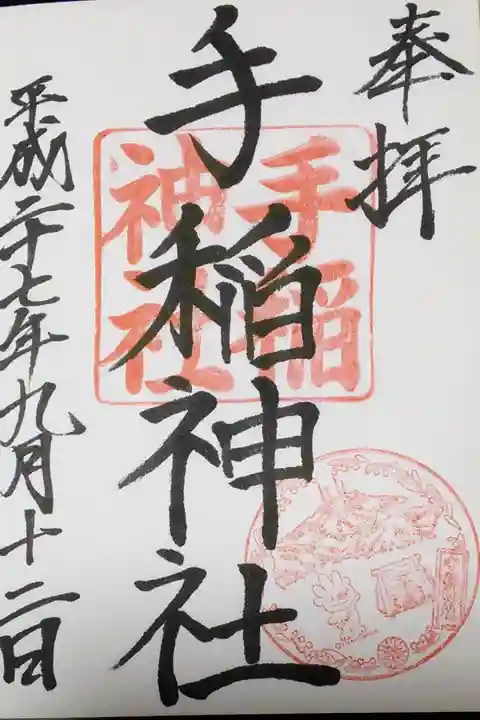 奉拝
手稲神社
手稲神社
平成二十七年九月十二日